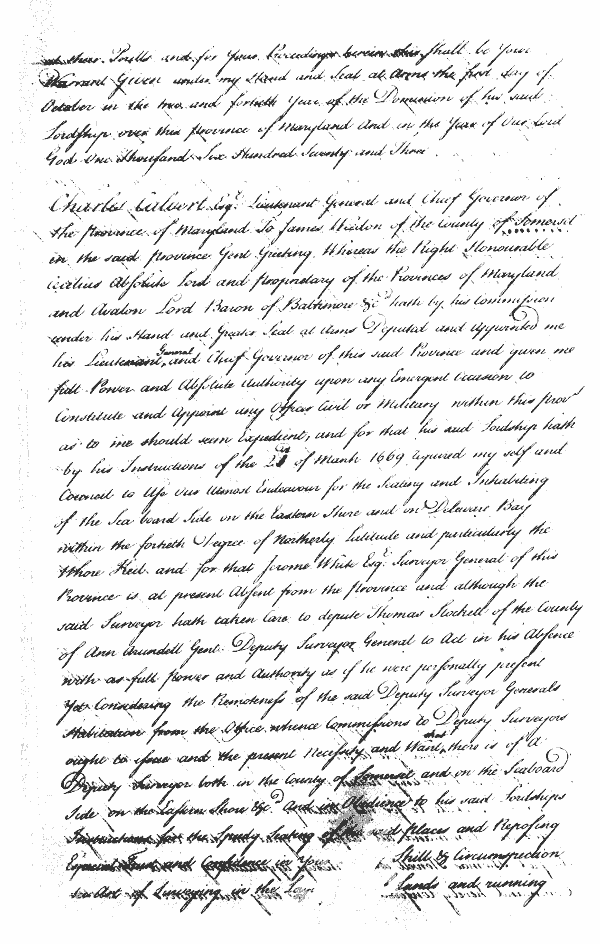 at their Perills and for your Proceedings herein this Shall be your
Warrant Given under my Hand and Seal at Arms the first day of
October in the two and fortieth Year of the Dominion of his said
Lordship over this Province of Maryland And in the Year of Our Lord
God One thousand Six Hundred Seventy and Three
Charles Calvert Esqr. Lieutenant General and Chief Governor of
the Province of Maryland To James Weedon of the County of Somerset
in the said province Gent Greeting Whereas the Right Honourable
Cecilius Absolute Lord and Proprietary of the Provinces of Maryland
and Avalon Lord Baron of Baltimore &c hath by his Commission
under his Hand and Greater Seal at Arms Deputed and Appointed me
his Lieutenant General and Chief Governor of this said Province and given me
full Power and Absolute Authority upon any Emergent Occasion to
Constitute and Appoint any Officer Civil or Military within this prov
as to me should seem Expedient, and for that his said Lordship hath
by his Instructions of the of March 1669 required my self and
Council to Use our utmost Endeavour for the Seating and Inhabiting
of the Sea board Side on the Eastern Shore and on Delaware Bay
within the fortieth Degree of Northerly Latitude and particularly the
Whore Kill and for that Jerome White Esqr. Surveyor General of this
Province is at present Absent from the Province and although the
said Surveyor hath taken Care to depute Thomas Stockett of the County
of Ann Arundell Gent. Deputy Surveyor General to Act in his Absence
with as full power and Authority as if he were personally present
Yet Considering the Remoteness of the said Deputy Surveyor Generals
Habitation from the Office whence Commissions to Deputy Surveyors
ought to issue and the present Necessity and Want that there is of a
Deputy Surveyor both in the County of Somerset and on the Seaboard
Side on the Eastern Shore &c And in Obedience to his said Lordships
Instructions for the Speedy Seating of the said places and Reposing
Especial Trust and Confidence in Your Skill & Circumspection
in Art of Surveying in the Lands and running